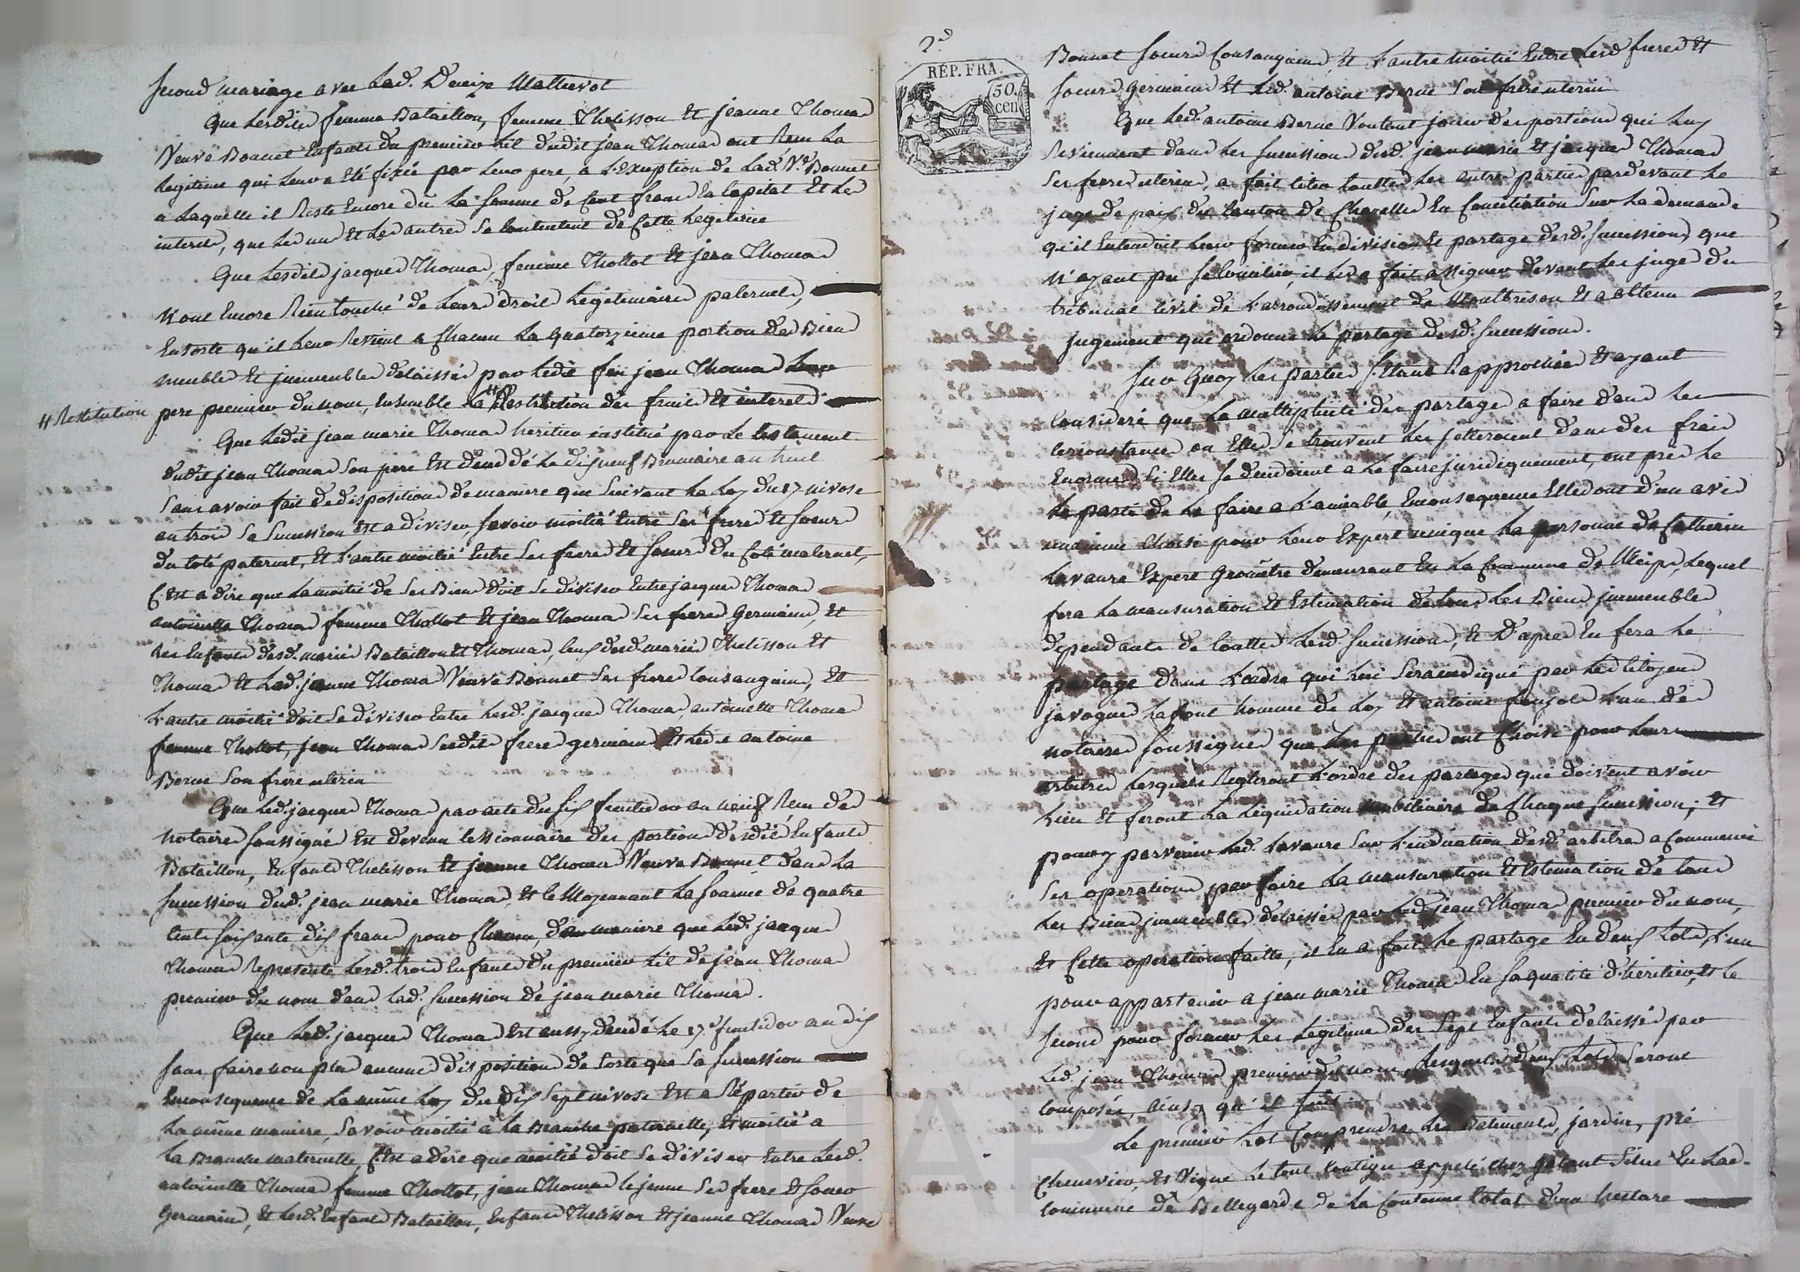 second mariage avec lad. Denize Mattevot
Que lesdits femme Bataillon, femme Thelisson et jeanne Thomas
Veuve Bonnet Enfants du premier lit dudit jean Thomas ont Recu La
legitime qui leur a été fixée par leur pere, a l'Exeption de Lad. Ve. Bonnet
a Laquelle il Reste Encore du La somme de Cent francs En Capital Et les
interets, que les uns Et les autres se Contentent de Cette Legitime
Que lesdits jacques Thomas, femme Thollot Et jean Thomas
n'ont Encore Rien touché de leurs droits Legitimaires paternels,
En sorte qu'il leur Revient a Chacun La quatorzieme portion des Biens
meubles Et jmmeubles délaissés par ledit feu jean Thomas leur
# Restitution
pere premier du nom, Ensemble La # Restitution des fruits Et interets.
Que Ledit jean marie Thomas heritier institué par le testament
dudit jean Thomas son pere Est décédé le dix neuf Brumaire an huit
sans avoir fait de disposition de maniere que suivant La Loy du 17 nivose
an trois sa succession Est a diviser savoir moitié Entre ses freres Et soeurs
du coté paternel, Et l'autre moitié Entre ses freres Et soeurs du Coté maternel,
C'est a dire que La moitié de ses Biens doit se diviser Entre jacques Thomas
antoinette Thomas femme Thollot Et jean Thomas ses freres Germains, Et
les Enfants desd. mariés Bataillon Et Thomas, ceux desd. mariés Thelisson Et
Thomas Et Lad. jeanne Thomas Veuve Bonnet ses freres Consanguins, Et
L'autre moitié doit se diviser Entre lesd. jacques Thomas, antoinette Thomas
femme Thollot, jean Thomas susdits freres germains Et ledit antoine
Berne son frere uterin
Que Led. jacques Thomas par acte du six fructidor an neuf Recu des
notaires soussignés Est devenu Cessionnaire des portions desdits Enfants
Bataillon, Enfants Thelisson Et jeanne Thomas Veuve Bonnet dans La
succession dud. jean marie Thomas, Et ce Moyennant La somme de quatre
Cent soixante dix francs pour Chacun, de maniere que Led. jacques
Thomas Represente lesd. trois Enfants du premier lit de jean Thomas
premier du nom dans Lad. succession de jean marie Thomas.
Que Led. jacques Thomas Est aussy décédé Le 17 fructidor an dix
sans faire non plus aucune disposition de sorte que sa succession
En consequence de La même Loy du dix sept nivose Est a Répartir de
La même maniere, savoir moitié a La Branche paternelle, Et moitié a
La Branche maternelle, C'est a dire que moitié doit se diviser Entre lesd.
antoinette Thomas femme Thollot, jean Thomas le jeune ses frere Et soeur
Germains, Et lesd. Enfants Bataillon, Enfants Thelisson Et jeanne Thomas Veuve
2e
REP. FRA.
50.
cen.
Bonnet soeurs Consanguins, Et L'autre moitié Entre lesd. freres Et
soeurs Germains Et Led. antoine Berne son frere uterin
Que Led. antoine Berne Voulant jouir des portions qui luy
Reviennent dans les successions desd. jean marie Et jacques Thomas
ses freres uterins, a fait citer touttes les autres parties pardevant Le
juge de paix du Canton de Chazelles En Conciliation sur La demande
qu'il Entendoit leur former En division Et partage desd. successions, que
n'ayant pu se Concilier, il les a fait assigner devant les juges du
tribunal Civil de L'arrondissement de Montbrison Et a obtenu
jugement qui ordonne Le partage desd. successions.
Sur Quoy Les parties s'Etant Rapprochées Et ayant
Consideré que La multiplicité des partages a faire dans les
Circonstances ou Elles se trouvent les jetteroient dans des frais
Enormes si Elles se decidoient a le faire juridiquement, ont pris le
le parti de Le faire a L'amiable, En consequence Elles ont d'un avis
unanime Choisi pour leur Expert unique La personne de Catherin
Lavaure Expert Géomêtre demeurant En La Commune de Meips, Lequel
fera La mensuration Et Estimation de tous Les Biens jmmeubles
dependants de touttes Lesd. successions, Et d'apres En fera le
partage dans L'ordre qui lui sera indiqué par Les Citoyens
javogues Lafont homme de Loy Et antoine poujol L'un des
notaires soussignés que Les parties ont Choisi pour leurs
arbitres Lesquels Regleront L'ordre des partages que doivent avoir
Lieu Et feront La Liquidation mobiliaire de Chaque succession; Et
pour y parvenir Led. Lavaure sur L'indication desd. arbitres a Commencé
ses operations par faire La mensuration Et Estimation de tous
Les Biens jmmeubles délaissés par Led. jean Thomas premier du nom,
Et Cette operation faitte, il En a fait Le partage En deux Lots, L'un
pour appartenir a jean marie Thomas En sa qualité d'héritier, Et Le
second pour former Les Legitimes des sept Enfants délaissés par
Led. jean Thomas premier du nom, Lesquels deux Lots seront
Composés, ainsy qu'il suit
Le premier Lot Comprendra Les Batiments, jardin, pré
Chenevier, Et Vigne Le tout Contigu appelé chez Galant situé En Lad.
Commune de Bellegarde de La Contenue total d'un hectare